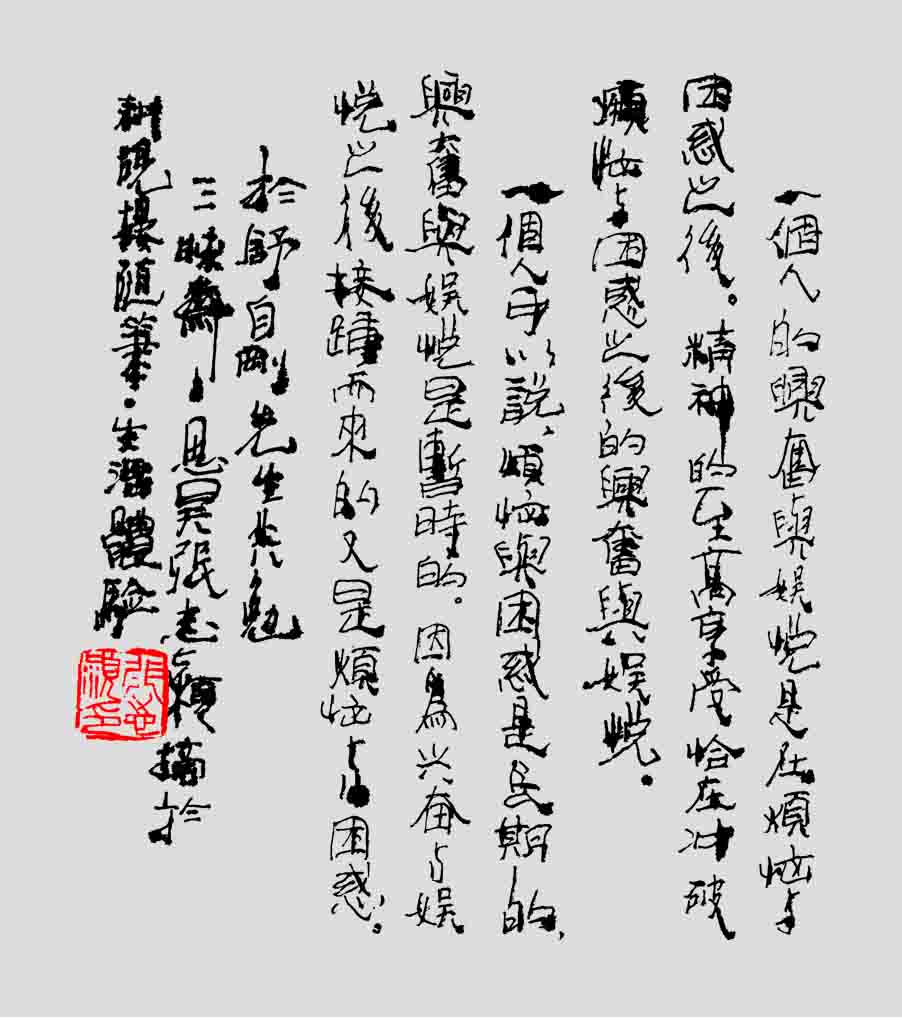 一個人的興奮與娛悅是在煩惱与
困惑之後。精神的至高享受恰在沖破
煩惱与困惑之後的興奮與娛悅。
一個人可以說，煩惱與困惑是長期的，
興奮與娛悅是暫時的。因為兴奋与娛
悅之後接踵而來的又是煩惱与困惑。
於野自剛先生共勉
三味齋 思昊張志穎摘於
耕硯樓隨筆·生活體驗